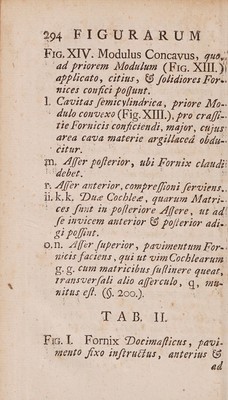 294 FIGURARUM
FIG. XIV. Modulus Concavus, quo,
ad priorem Modulum (FIG. XIII.)
applicato, citius, & ſolidiores For-
nices confici poſſunt.
l. Cavitas ſemicylindrica, priore Mo-
dulo convexo (Fig. XIII.), pro craſſi-
tie Fornicis conficiendi, major, cujus
area cava materie argillacea obdu-
citur.
m. Aſſer poſterior, ubi Fornix claudi
debet.
r. Aſſer anterior, compreſſioni ſerviens.
ii. k.k. Duæ Cochleæ, quarum Matri-
ces ſunt in poſteriore Aſſere, ut ad
ſe invicem anterior & poſterior adi-
gi poſſint.
o.n. Aſſer ſuperior, pavimentum For-
nicis faciens, qui ut vim Cochlearum
g. g. cum matricibus ſuſtinere queat,
tranſverſali alio aſſerculo, q, mu-
nitus eſt. (§. 200.).
TAB. II.
FIG. I. Fornix Docimaſticus, pavi-
mento fixo inſtructus, anterius &
ad